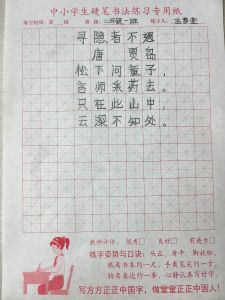 中小学生硬笔书法练习专用纸
练字时间: 第 周 班级: 二年级一班 练字人:
寻隐者不遇
唐 贾岛
松下问童子,
言师采药去。
只在此山中,
云深不知处。
教师评价: 优秀□ 良好□ 有进步□
练字姿势与口诀: 头正、身平、脚放松,
眼离书本约一尺, 手离笔尖约一寸,
胸离桌边约一拳, 心静认真写好字。
写方方正正中国字, 做堂堂正正中国人!